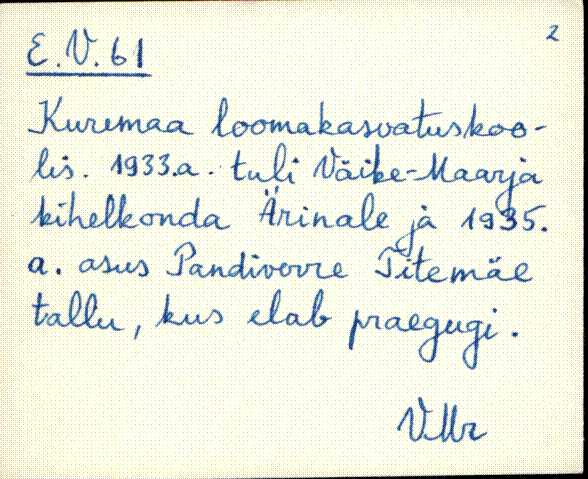 2
E.V.61
Kuremaa loomakasvatuskoo-
lis. 1933.a. tuli Väike-Maarja
kihelkonda Ärinale ja 1935.
a. asus Pandivere Titemäe
tallu, kus elab praegugi.
VMr